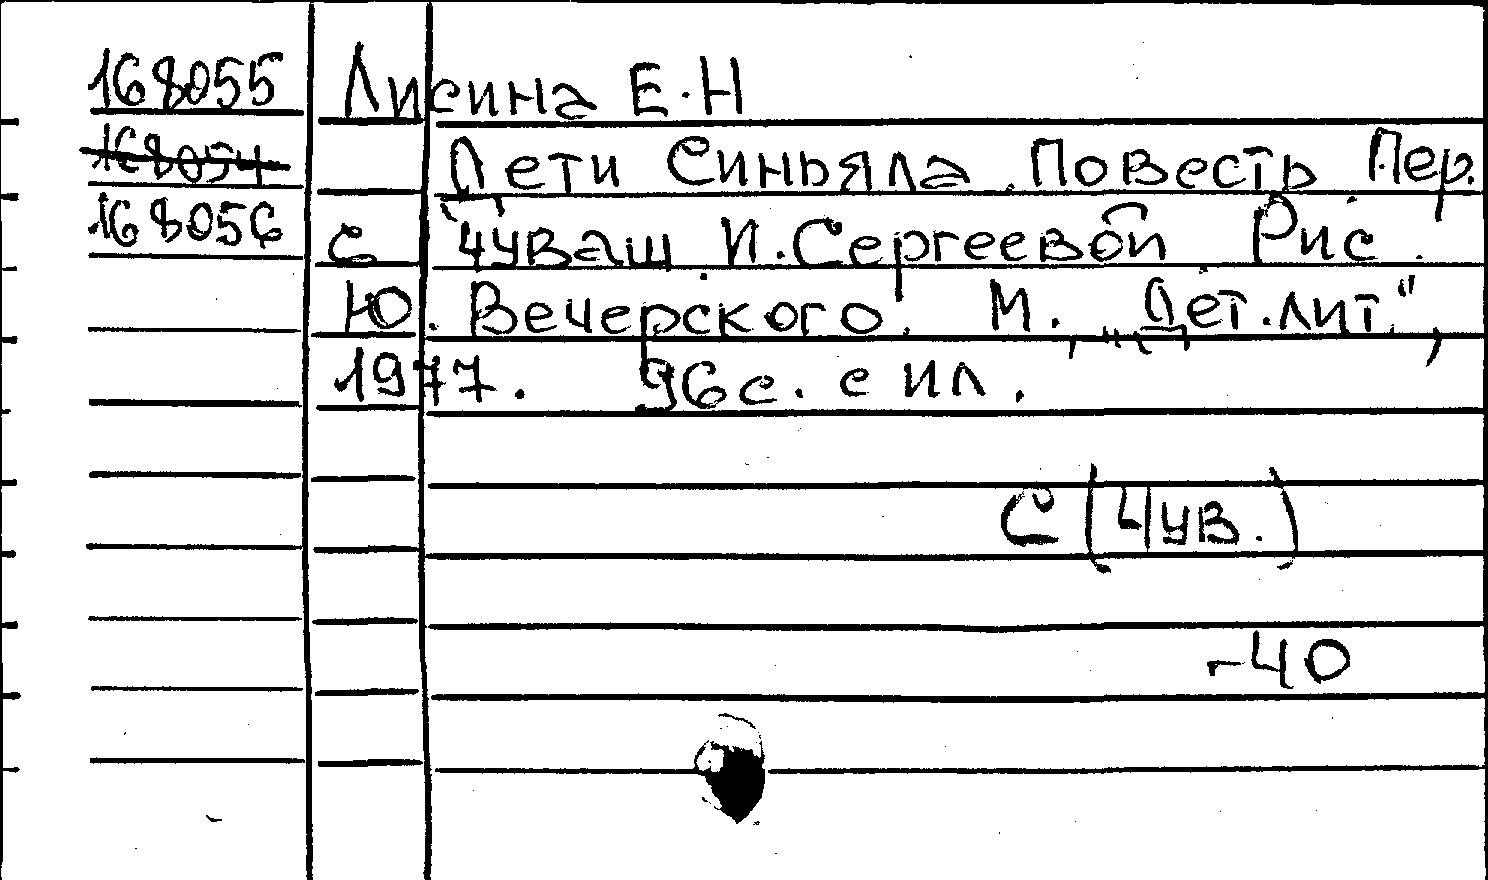 168055 Лисина Е.Н
168054 Дети Синьяла. Повесть Пер.
168056 с чуваш. И.Сергеевой Рис.
Ю. Вечерского. М., „Дет.лит.",
1977. 96с. с ил.
С(Чув.)
-40